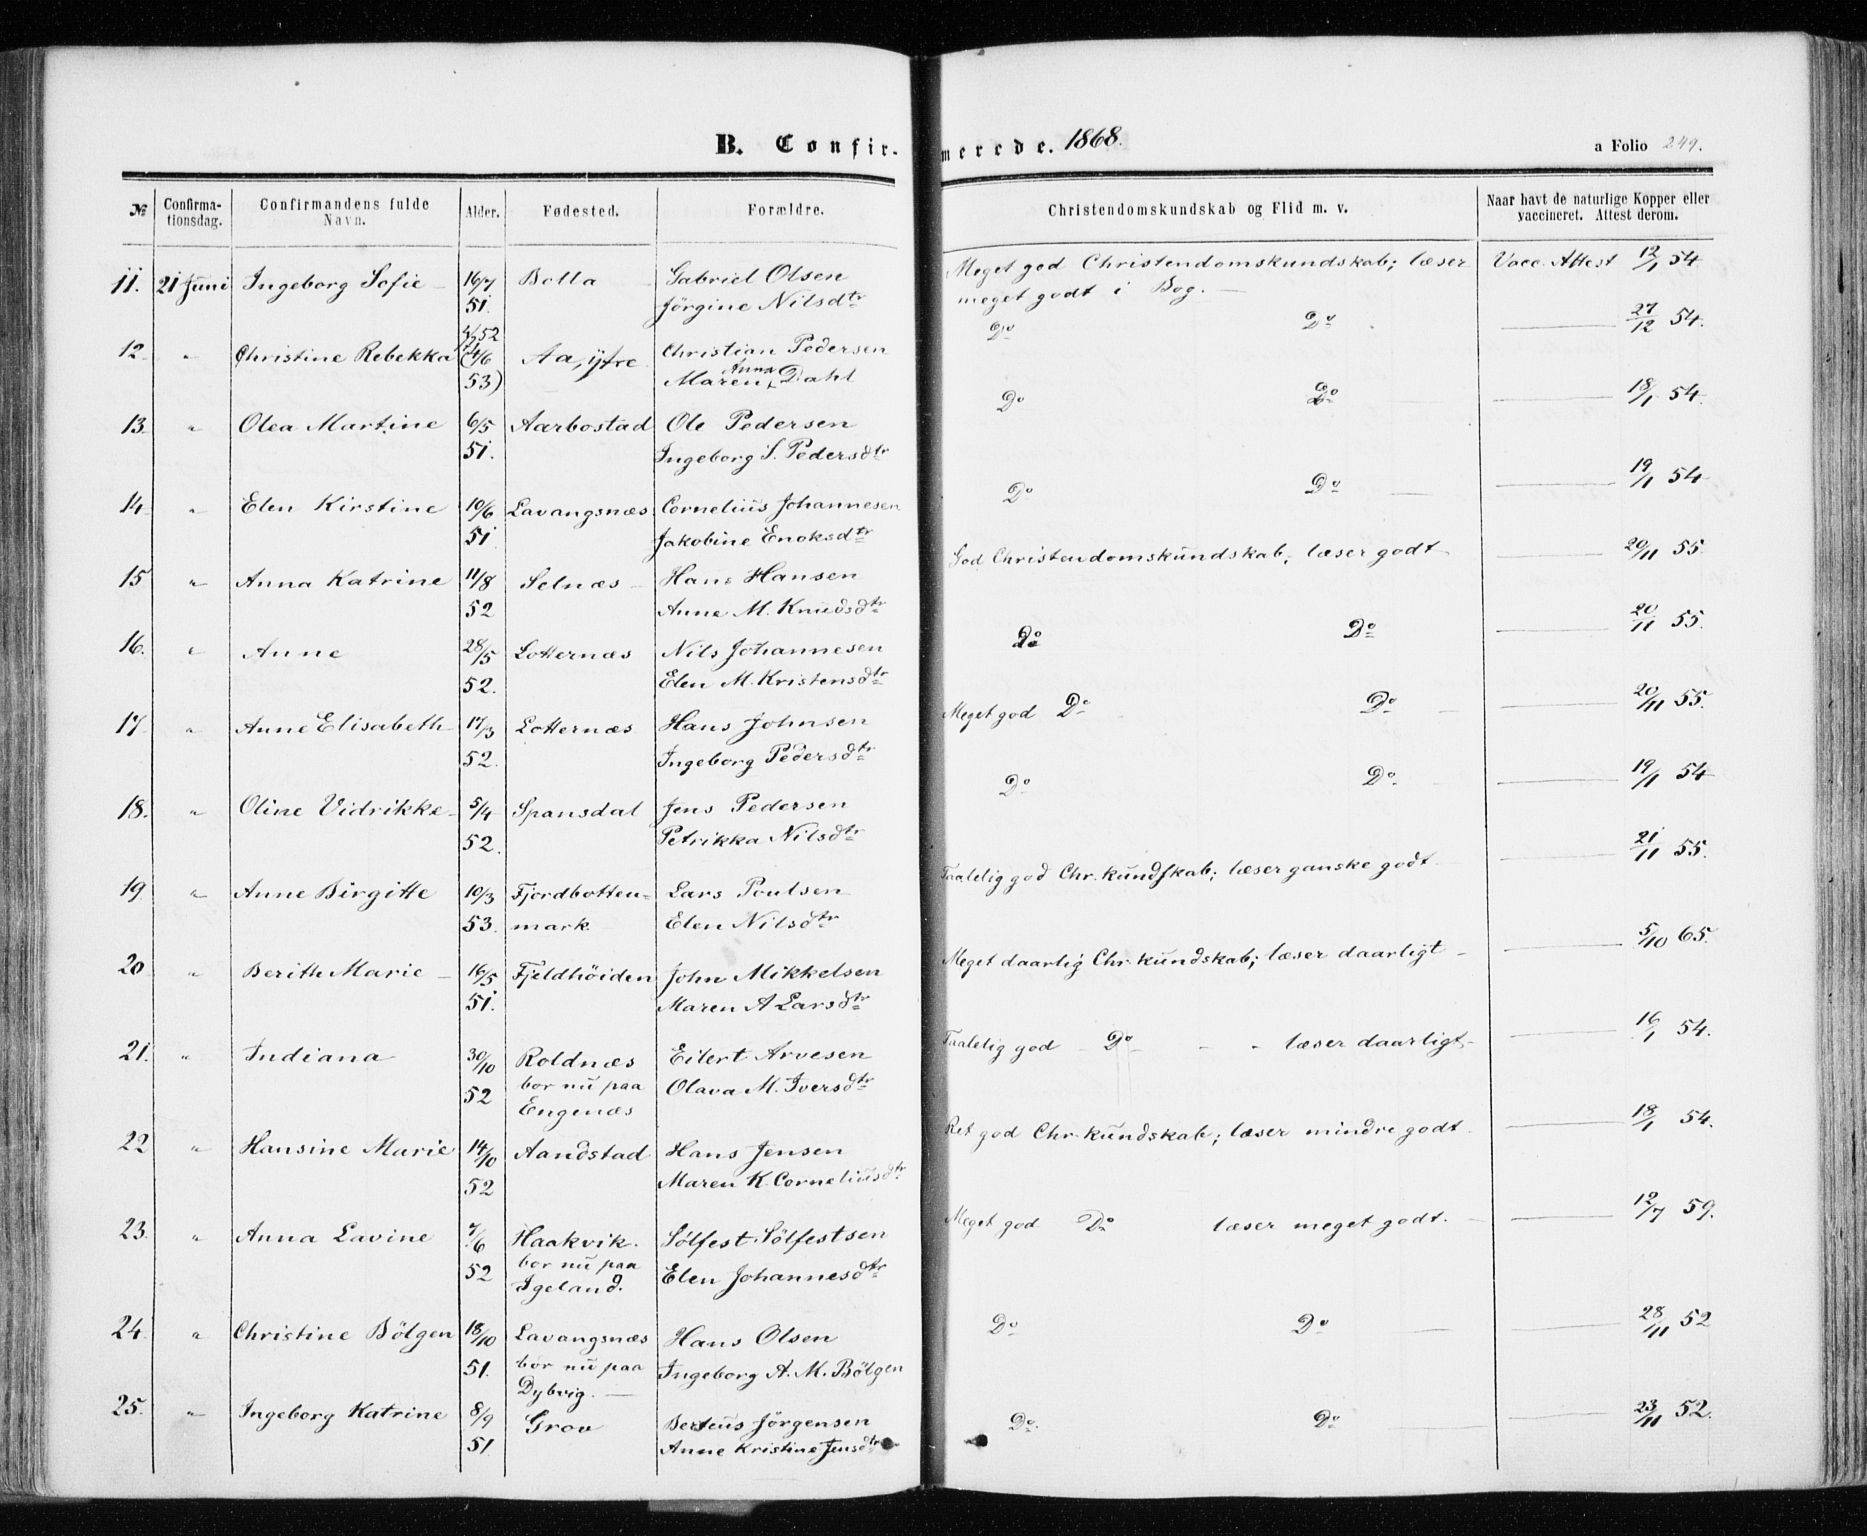 B. Confirmerede. 1868.
a Folio 249.
№ Confirmationsdag. Confirmandens fulde Navn. Alder. Fødested. Forældre. Christendomskundskab og Flid m. v. Naar havt de naturlige Kopper eller vaccineret. Attest derom.
11. 21 Juni Ingeborg Sofie 16/7 Bolla Gabriel Olsen Meget god Christendomskundskab; læser Vacc. Attest 12/1 54.
51. Jörgine Nilsdtr meget godt i Bog.
4/12 52
12. " Christine Rebekka (4/6 Aa, ytre Christian Pedersen Do Do 27/12 54.
53) Maren Anna Dahl
13. " Olea Martine 6/5 Aarbostad Ole Pedersen Do Do 18/1 54.
51. Ingeborg S. Pedersdtr
14 " Elen Kirstine 10/6 Lavangsnæs Cornelius Johannesen Do Do 19/1 54
51 Jakobine Enoksdtr
15 " Anna Katrine 11/8 Selnæs Hans Hansen God Christendomskundskab, læser godt 20/11 55.
52 Anne M. Knudsdtr
16. " Anne 28/5 Lotternæs Nils Johannesen Do Do 20/11 55.
52. Elen M. Kristensdtr
17. " Anne Elisabeth 17/3 Lotternæs Hans Johnsen Meget god Do Do 20/11 55.
52. Ingeborg Pedersdtr
18. " Oline Vidrikke 5/4 Spansdal Jens Pedersen Do Do 19/1 54
52. Petrikka Nilsdtr
19. " Anne Birgitte 10/3 Fjordbotten= Lars Poulsen Taalelig god Chr. kundskab; læser ganske godt 21/11 55.
53. mark Elen Nilsdtr
20 " Berith Marie 16/5 Fjeldhöiden John Mikkelsen Meget daarlig Chr. kundskab; læser daarligt 5/10 65.
51. Maren A Larsdtr
21. " Indiana 30/10 Roldnæs Eilert Arvesen Taalelig god Do læser daarligt 16/1 54.
52 bor nu paa Olava M. Iversdtr
Engenæs
22 " Hansine Marie 14/10 Aandstad Hans Jensen Ret god Chr. kundskab; læser mindre godt 18/1 54.
52 Maren K. Corneliusdtr
23. " Anna Lavine 7/6 Haakvik. Sölfest Sölfestsen Meget god Do læser meget godt. 12/7 59.
52 bor nu paa Elen Johannesdtr
Igeland.
24. " Christine Bölgen 18/10 Lavangsnæs Hans Olsen Do Do 28/11 52
51. bor nu paa Ingeborg A. M. Bölgen
Dybvig.
25. " Ingeborg Katrine 8/9 Grov Berteus Jörgensen Do. Do 23/11 52.
51 Anne Kristine Jensdtr